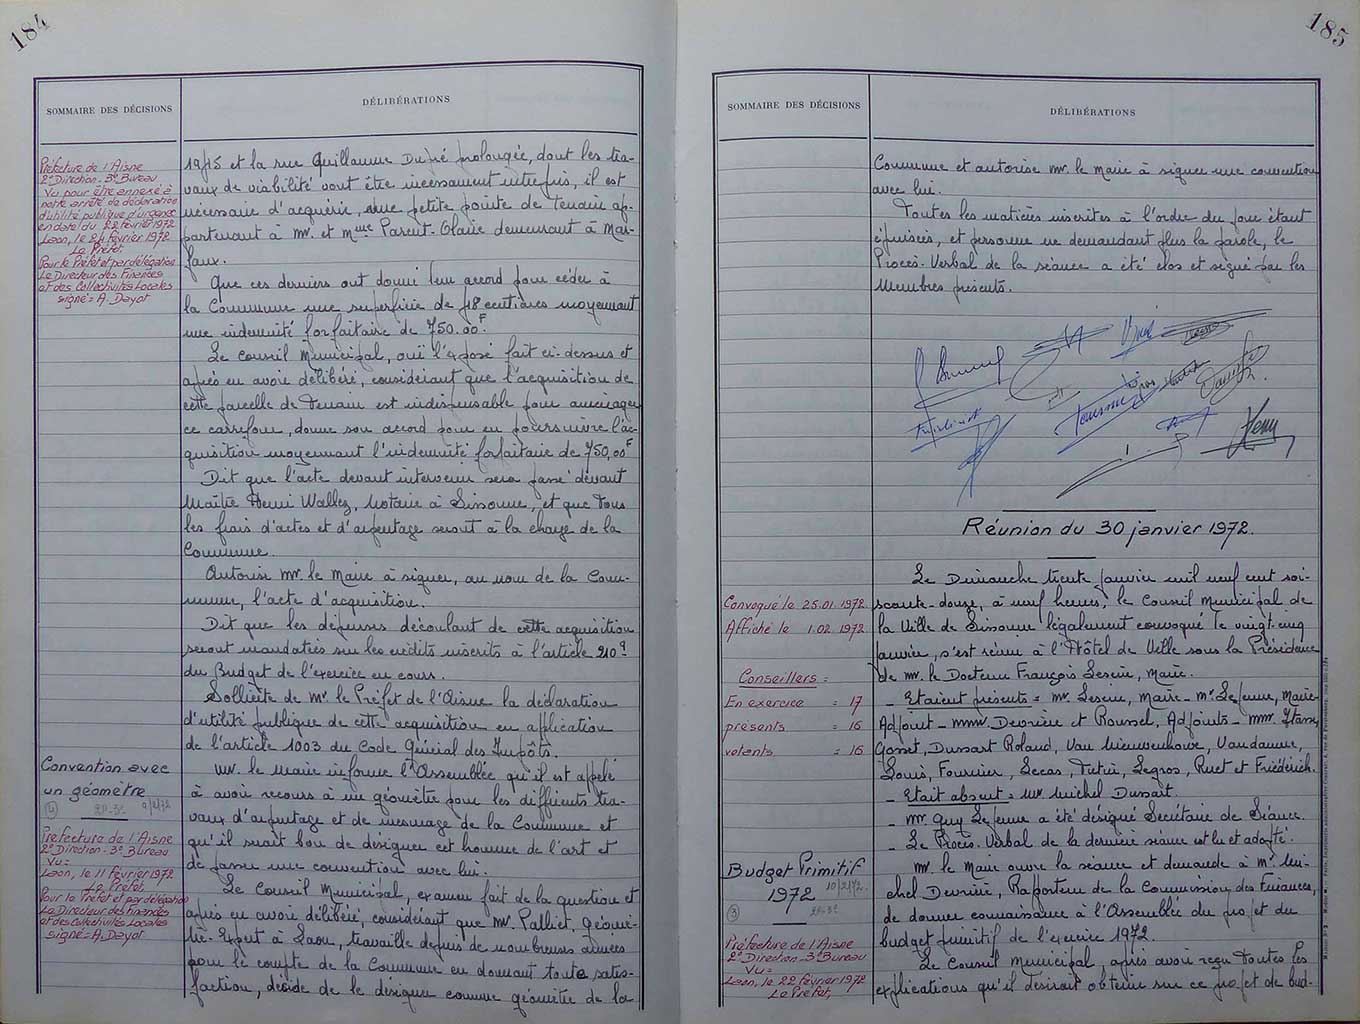 184
SOMMAIRE DES DÉCISIONS
DÉLIBÉRATIONS
Préfecture de l'Aisne
2e Direction - 3e Bureau
Vu pour être annexé à
notre arrêté de déclaration
d'utilité publique d'urgence
en date du 22 février 1972
Laon, le 24 février 1972
Le Préfet,
Pour le Préfet et par délégation
Le Directeur des Finances
et des Collectivités Locales
signé = A. Dayot
et la rue Guillaume Dupré prolongée, dont les tra-
vaux de viabilité vont être incessament entrepris, il est
nécessaire d'acquérir, une petite pointe de terrain ap-
partenant à mr. et mme Parent-Olaire demeurant à
Que ces derniers ont donné leur accord pour céder à
la Commune une superficie de 78 centiares moyennant
une indemnité forfaitaire de 750.00F.
Le Conseil Municipal, ouï l'exposé fait ci-dessus et
après en avoir délibéré, considérant que l'acquisition de
cette parcelle de terrain est indispensable pour aménager
ce carrefour, donne son accord pour en poursuivre l'ac-
quisition moyennant l'indemnité forfaitaire de 750,00F
Dit que l'acte devant intervenir sera passé devant
Maître Henri Wallez, Notaire à Sissonne, et que tous
les frais d'actes et d'arpentage seront à la charge de la
Commune.
Autorise mr. le Maire à signer, au nom de la Com-
mune, l'acte d'acquisition.
Dit que les dépenses découlant de cette acquisition
seront mandatées sur les crédits inscrits à l'article 210
du Budget de l'exercice en cours.
Sollicite de mr le Préfet de l'Aisne la déclaration
d'utilité publique de cette acquisition en application
de l'article 1003 du Code Général des Impôts.
Convention avec
un géomètre
4
2D-3e 9/2/72
Préfecture de l'Aisne
2e Direction - 3e Bureau
Vu =
Laon, le 11 février 1972
Le Préfet,
Pour le Préfet et par délégation
Le Directeur des Finances
et des Collectivités Locales
signé = A. Dayot
mr. le Maire informe l'Assemblée qu'il est appelé
à avoir recours à un géomètre pour les différents tra-
vaux d'arpentage et de mesurage de la Commune et
qu'il serait bon de désigner cet homme de l'art et
de passer une convention avec lui.
Le Conseil Municipal, examen fait de la question et
après en avoir délibéré, considérant que mr. Palliet, géomè-
tre-Expert à Laon, travaille depuis de nombreuses années
pour le compte de la Commune en donnant toute satis-
faction, décide de le désigner comme géomètre de la
185
SOMMAIRE DES DÉCISIONS
DÉLIBÉRATIONS
Commune et autorise mr. le Maire à signer une convention
avec lui.
Toutes les matières inscrites à l'ordre du jour étant
épuisées, et personne ne demandant plus la parole, le
Procès-Verbal de la séance a été clos et signé par les
Membres présents.
Réunion du 30 janvier 1972.
Convoqué le 25.01.1972
Affiché le 1.02.1972
Conseillers =
En exercice = 17
présents = 16
votants = 16
Le Dimanche trente Janvier mil neuf cent soi-
xante-douze, à neuf heures, le Conseil Municipal de
la Ville de Sissonne légalement convoqué le vingt-cinq
janvier, s'est réuni à l'Hôtel de Ville sous la Présidence
de mr. le Docteur François Maire.
- Etaient présents = mr. Maire - mr Lefemme, Maire-
Adjoint - mmrs. Devrière et Roussel, Adjoints - mm.
Gosset, Dussart Roland, Van Nieuwenhove, Vandamme,
Louis, Fournier, Lecas, Legros, Ruet et Friédérich.
- Etait absent = mr Michel Dussart.
- mr. Guy Lefemme a été désigné Secrétaire de Séance.
- Le Procès-Verbal de la dernière séance est lu et adopté.
Budget Primitif
1972
10/2/72.
3
2D-3e
Préfecture de l'Aisne
2e Direction - 3e Bureau
Vu =
Laon, le 22 février 1972
Le Préfet,
mr. le Maire ouvre la séance et demande à mr. Mi-
chel Devrière, Rapporteur de la Commission des Finances,
de donner connaissance à l'Assemblée du projet du
budget primitif de l'exercice 1972.
Le Conseil Municipal, après avoir reçu toutes les
explications qu'il désirait obtenir sur ce projet de bud-